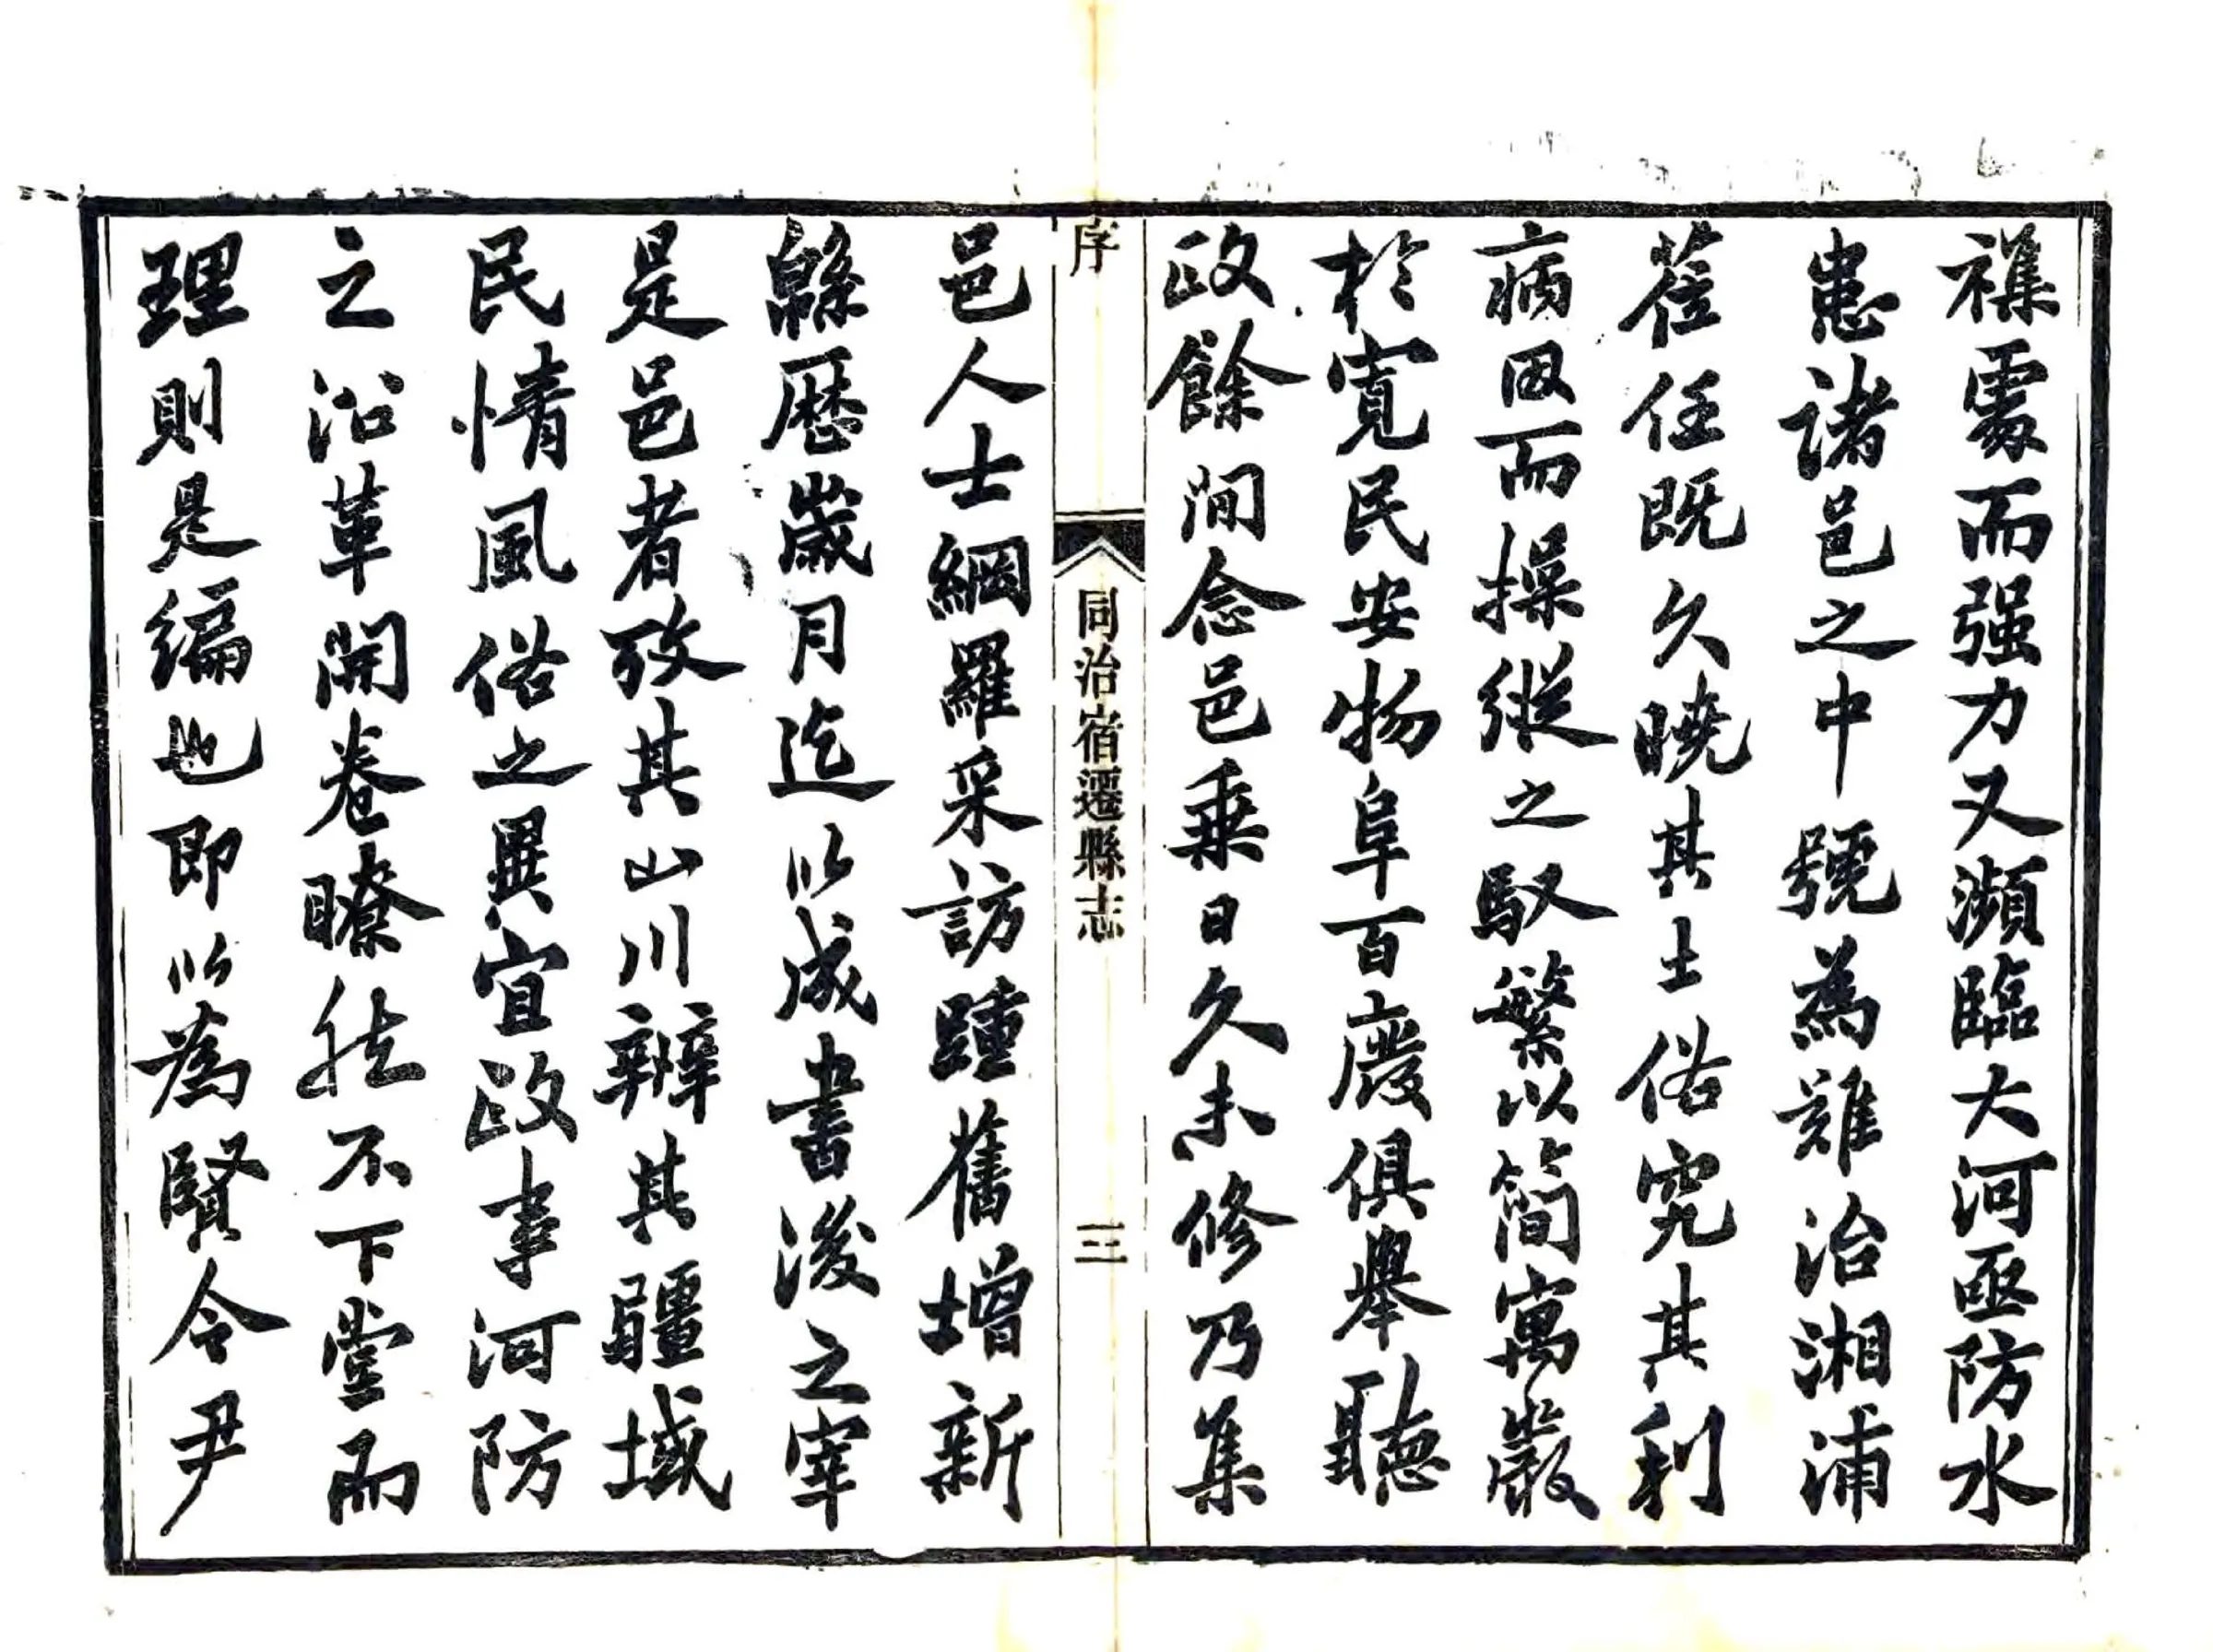 襍處而强力又瀕臨大河亟防水
患諸邑之中號為難治湘浦
蒞任既久曉其土俗究其利
病因而操縱之馭繁以簡寓嚴
於寬民安物阜百廢俱舉聽
政餘閒念邑乘日久未修乃集
序
同治宿遷縣志
三
邑人士網羅采訪踵舊增新
緜歷歲月迄以成書後之宰
是邑者攷其山川辨其疆域
民情風俗之異宜政事河防
之沿革開卷瞭然不下堂而
理則是編也即以為賢令尹